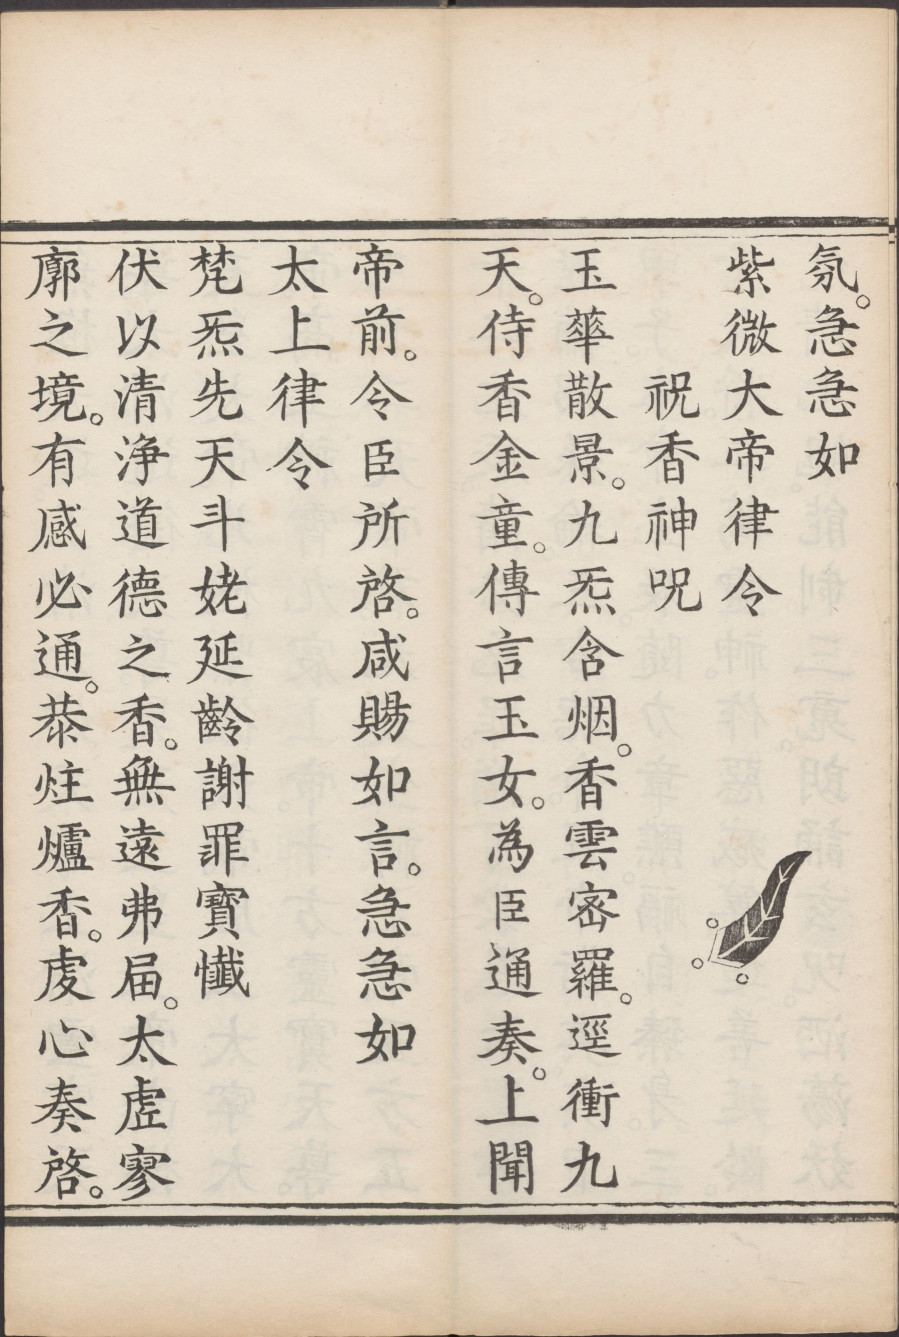 氛。急急如
紫微大帝律令
祝香神咒
玉華散景。九炁含烟。香雲宻羅。逕衝九
天。侍香金童。傳言玉女。為臣通奏。上聞
帝前。令臣所啓。咸賜如言。急急如
太上律令
梵炁先天斗姥延齡謝罪寶懺
伏以清淨道德之香。無遠弗届。太虛寥
廓之境。有感必通。恭炷爐香。虔心奏啓。